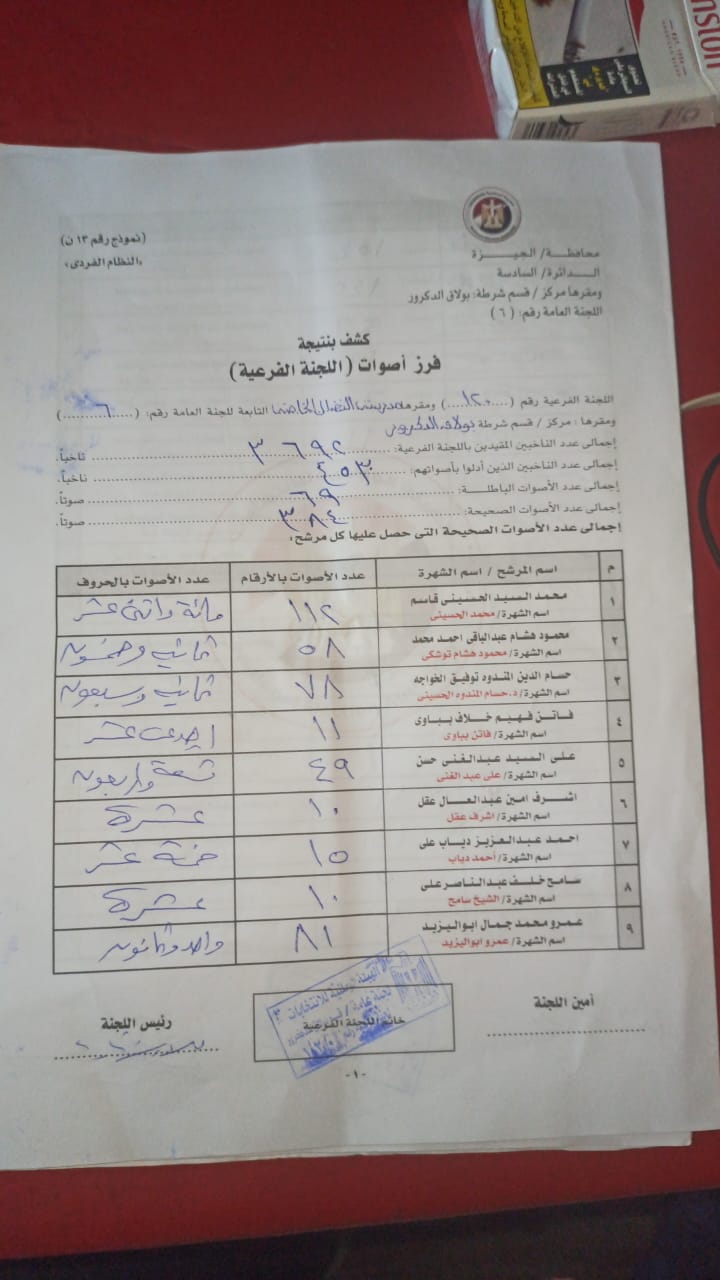 (نموذج رقم ١٣ ن)
«النظام الفردى»
محافظة/ الجيزة
الدائرة/ السادسة
ومقرها مركز / قسم شرطة: بولاق الدكرور
اللجنة العامة رقم: ( ٦ )
كشف بنتيجة
فرز أصوات (اللجنة الفرعية)
اللجنة الفرعية رقم (١٢٠) ومقرها مدرسة النضال الخاصة التابعة للجنة العامة رقم: (٦)
ومقرها: مركز / قسم شرطة بولاق الدكرور
إجمالى عدد الناخبين المقيدين باللجنة الفرعية: ٣٦٩٢ ناخباً.
إجمالى عدد الناخبين الذين أدلوا بأصواتهم: ٤٥٣ ناخباً.
إجمالى عدد الأصوات الباطلة: ٦٩ صوتاً.
إجمالى عدد الأصوات الصحيحة: ٣٨٤ صوتاً.
إجمالى عدد الأصوات الصحيحة التى حصل عليها كل مرشح:
م اسم المرشح / اسم الشهرة عدد الأصوات بالأرقام عدد الأصوات بالحروف
١ محمد السيد الحسينى قاسم ١١٢ مائة واثنى عشر
اسم الشهرة/ محمد الحسينى
٢ محمود هشام عبدالباقى احمد محمد ٥٨ ثمانيه وخمسون
اسم الشهرة/ محمود هشام توشكى
٣ حسام الدين المندوه توفيق الخواجه ٧٨ ثمانيه وسبعون
اسم الشهرة/ د.حسام المندوه الحسينى
٤ فاتن فهيم خلاف بباوى ١١ إحدى عشر
اسم الشهرة/ فاتن بباوى
٥ على السيد عبدالغنى حسن ٤٩ تسعة واربعون
اسم الشهرة/ على عبد الغنى
٦ اشرف امين عبدالعال عقل ١٠ عشرة
اسم الشهرة/ اشرف عقل
٧ احمد عبدالعزيز دياب على ١٥ خمسة عشر
اسم الشهرة/ أحمد دياب
٨ سامح خلف عبدالناصر على ١٠ عشرة
اسم الشهرة/ الشيخ سامح
٩ عمرو محمد جمال ابواليزيد ٨١ واحد وثمانون
اسم الشهرة/ عمرو ابواليزيد
أمين اللجنة
خاتم اللجنة الفرعية
رئيس اللجنة
-١-